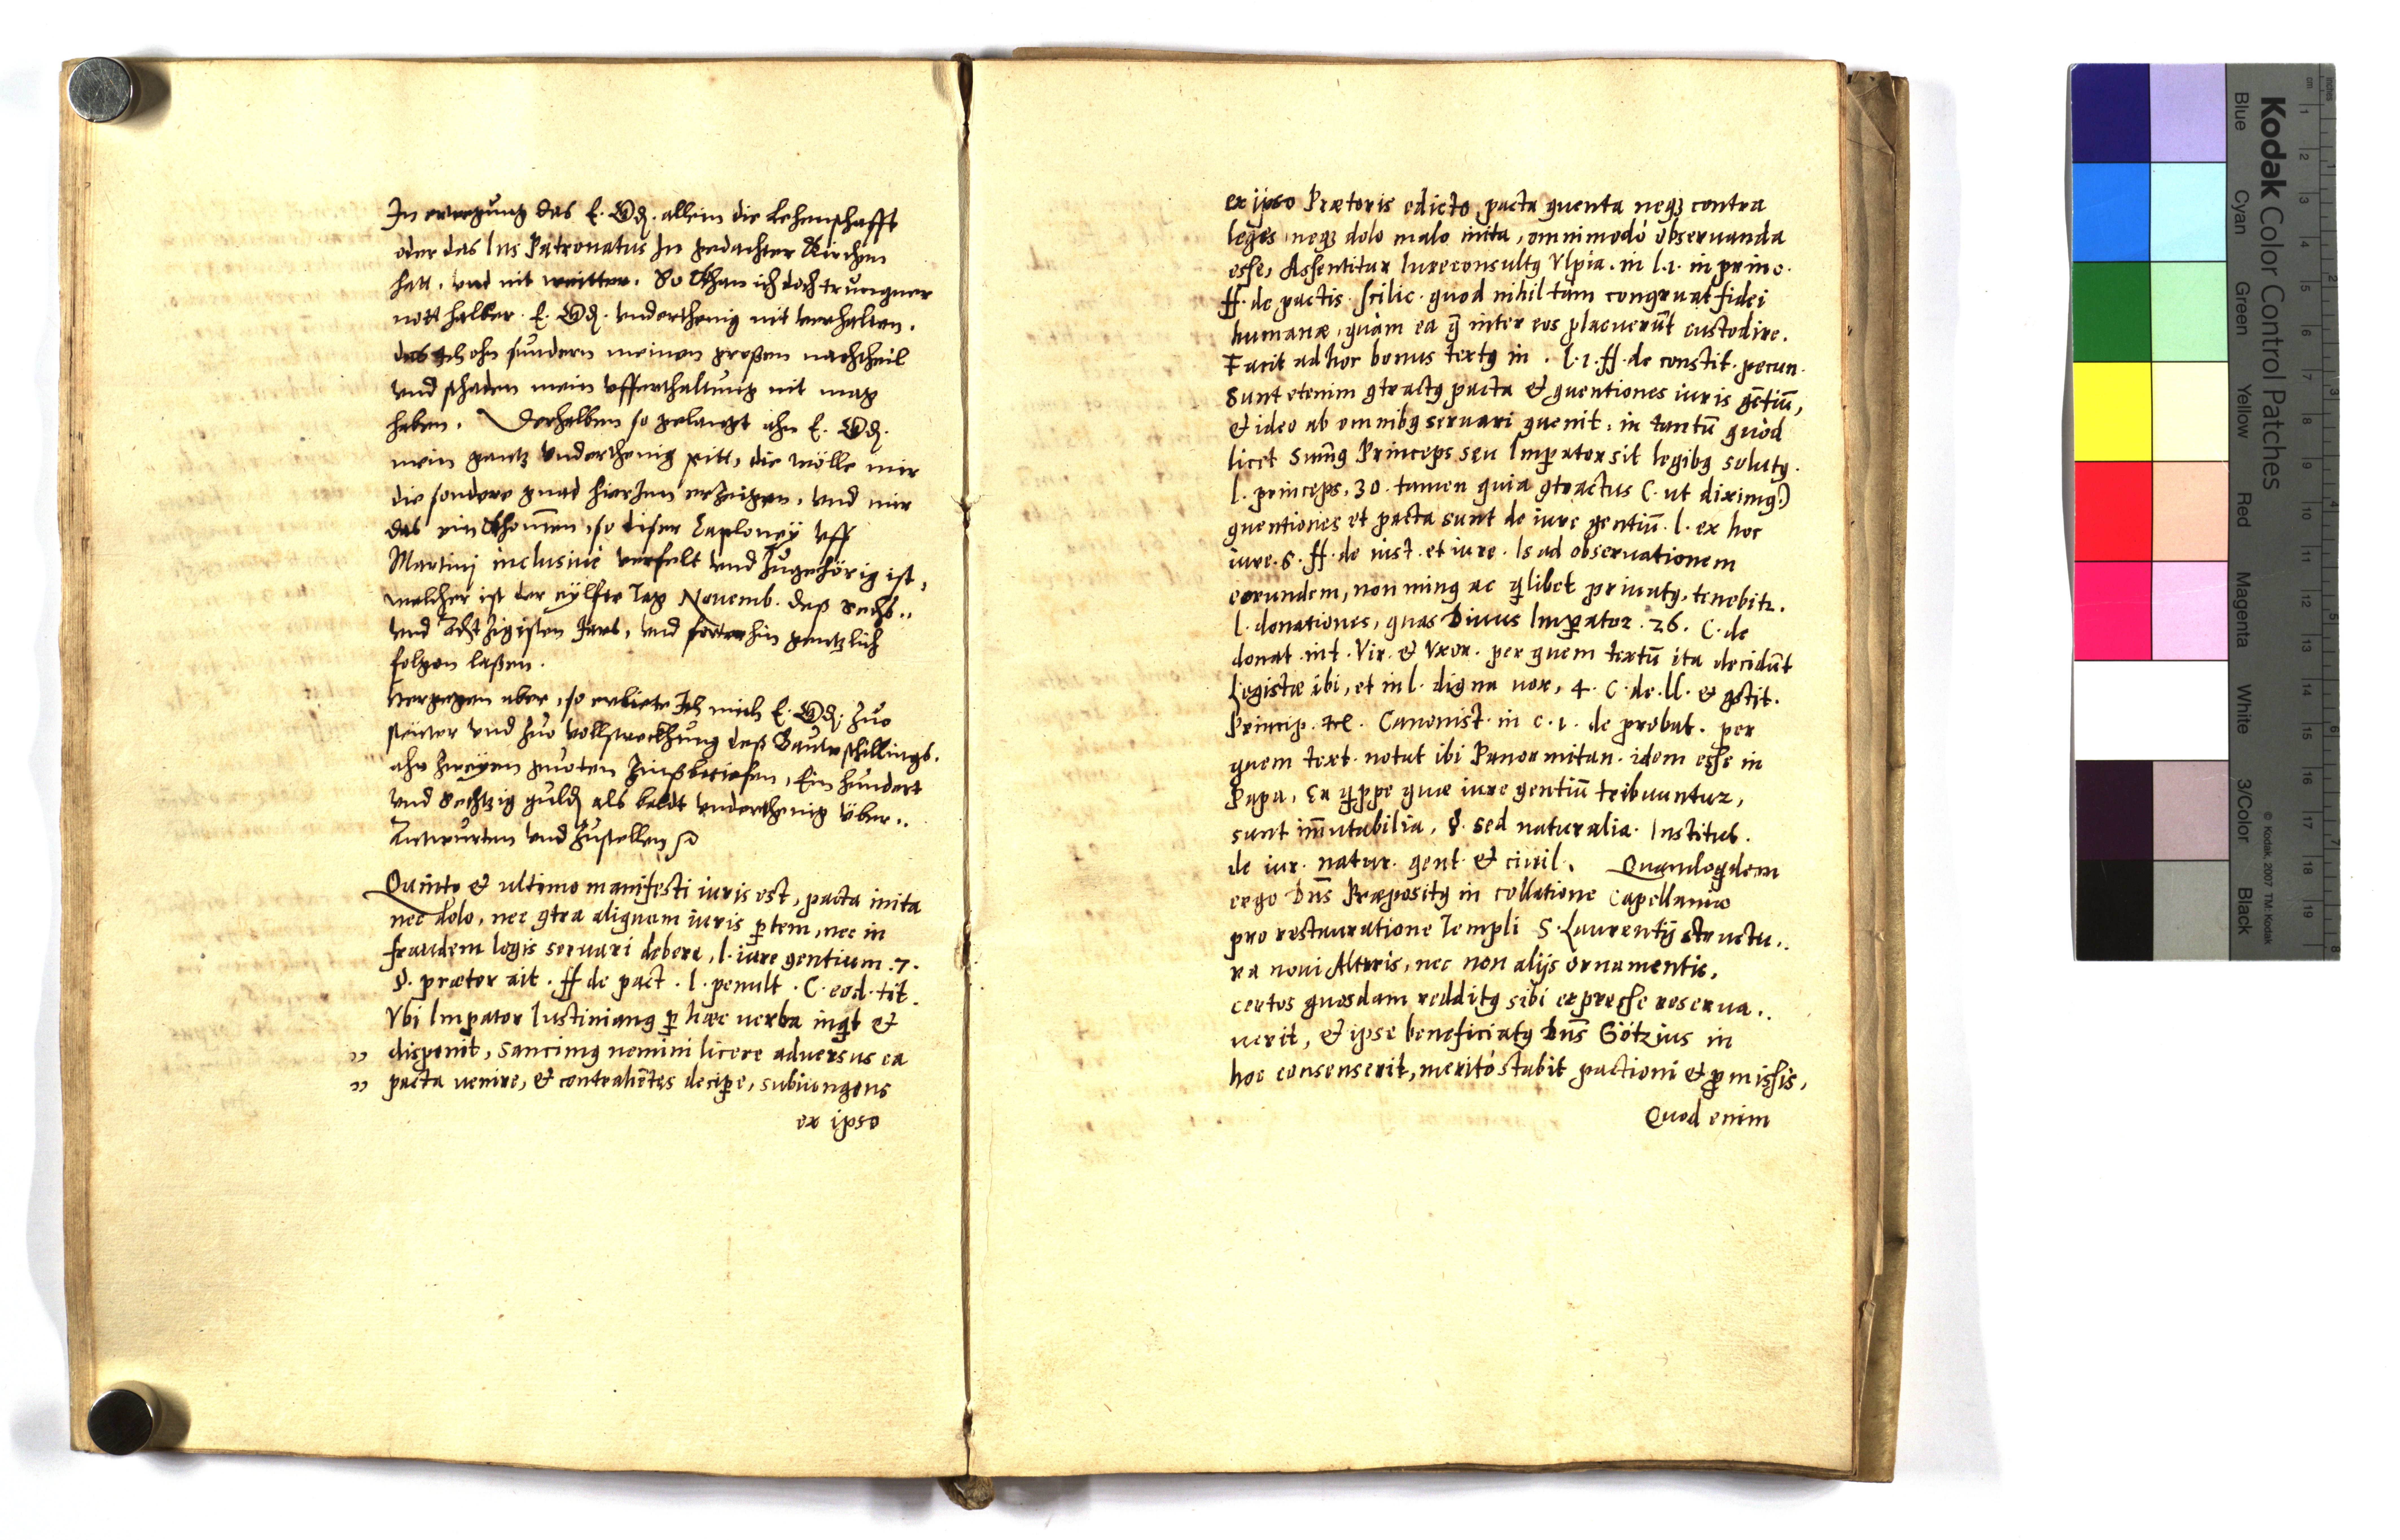 In erwegung das E. Gd. allein die Lehenschafft
oder das Ius Patronatus In gedachter Kirchen
hatt, und nit weitter. So Khan ich doch trungner
nott halber E. Gd. underthenig nit verhalten,
das Ich ohn sundern meinen großen nachtheil
und schaden mein uffenthaltung nit mag
haben. Derhalben so gelangt ahn E. Gd.
mein gantz underthenig pitt, die wölle mir
die sondere gnad hierinn erzeigen, und mir
das ein Khomen, so diser Caploney uff
Martinj inclusiuè verfelt und zugehörig ist,
welcher ist der eylfte Tag Nouemb. deß Sechs..
und Achtzigisten Jars, und forterhin gentzlich
folgen laßen.
Hergegen aber, so erbiete Ich mich E. Gd. zuo
steüwr und zuo vollstreckhung deß Bauwschillings.
ahn zweyen guoten Zinßbriefen, Ein hundert
und Sechtzig guld als baldt underthenig über..
Antwurten und zustellen
Quinto & ultimo manifesti iuris est, pacta inita
nec dolo, nec 9tra aliquam iuris ptem, nec in
fraudem legis seruari debere, l. iure gentium .7.
§. prætor ait. ff de pact. l. penult. C. eod. tit.
Vbi Impator Iustinian9 p hæc uerba inqt &
,, disponit, Sancim9 nemini licere aduersus ea
,, pacta uenire, & contrahētes decipe, subiungens
ex ipso
ex ipso Prætoris edicto, pacta 9uenta neq3 contra
leges neq3 dolo malo inita, omnimodò obseruanda
esse, Assentitur Iureconsult9 Vlpia. in l.1. in princ.
ff. de pactis. scilic. quod nihil tàm congruat fidei
humanæ, quàm ea q̃ inter eos placuerūt custodire.
Facit ad hoc bonus text9 in . l.1. ff. de constit. pecun.
Sunt etenim 9tract9 pacta & 9uentiones iuris gētiū,
& ideo ab omnib9 seruari 9uenit, in tantū quòd
licet Sum̄9 Princeps seu Impator sit legib9 solut9.
l. princeps, 30. tamen quia 9tractus (ut dixim9)
9uentiones et pacta sunt de iure gentiū. l. ex hoc
iure. 5. ff. de iust. et iure. Is ad obseruationem
eorundem, non min9 ac qlibet priuat9, tenebitr.
l. donationes, quas Diuus Impator. 26. C. de
donat. int. Vir. & Vxor. per quem textū ita decidūt
Legistæ ibi, et in l. digna uox, 4. C. de. ll. & 9stit.
Princip. Canonist. in c.1. de probat. per
quem text. notat ibi Panormitan. idem esse in
Papa, Ea qppe quæ iure gentiū tribuuntur,
sunt im̄utabilia, §. sed naturalia. Institut.
de iur. natur. gent. & ciuil. Quandoqdem
ergo Dn̄s Præposit9 in collatione Capellaniæ
pro restauratione Templi S. Laurentij structu..
ra noui Altaris, nec non alijs ornamentis,
certos quosdam reddit9 sibi expresse reserua..
uerit, & ipse beneficiat9 Dn̄s Götzius in
hoc consenserit, meritò stabit pactioni & pmissis,
Quod enim
Kodak Color Control Patches
Blue Cyan Green Yellow Red Magenta White 3/Color Black
© Kodak, 2007 TM: Kodak